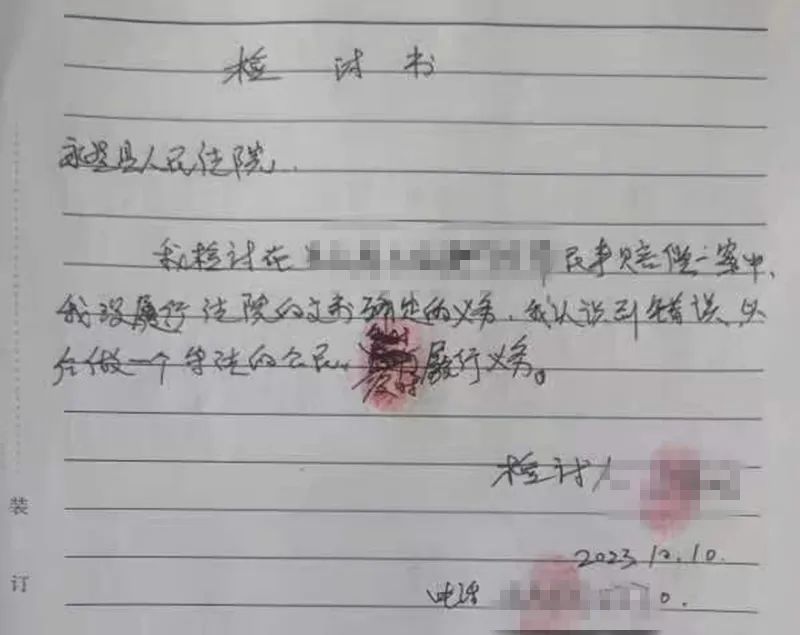 检 讨 书
永登县人民法院.
我检讨在 民事赔偿一案中,
我没履行法院的文书确定的义务,我认识到错误,以
后做一个守法的公民、按时履行义务。
检讨人
2023.12.10.
电话 0.
装
订